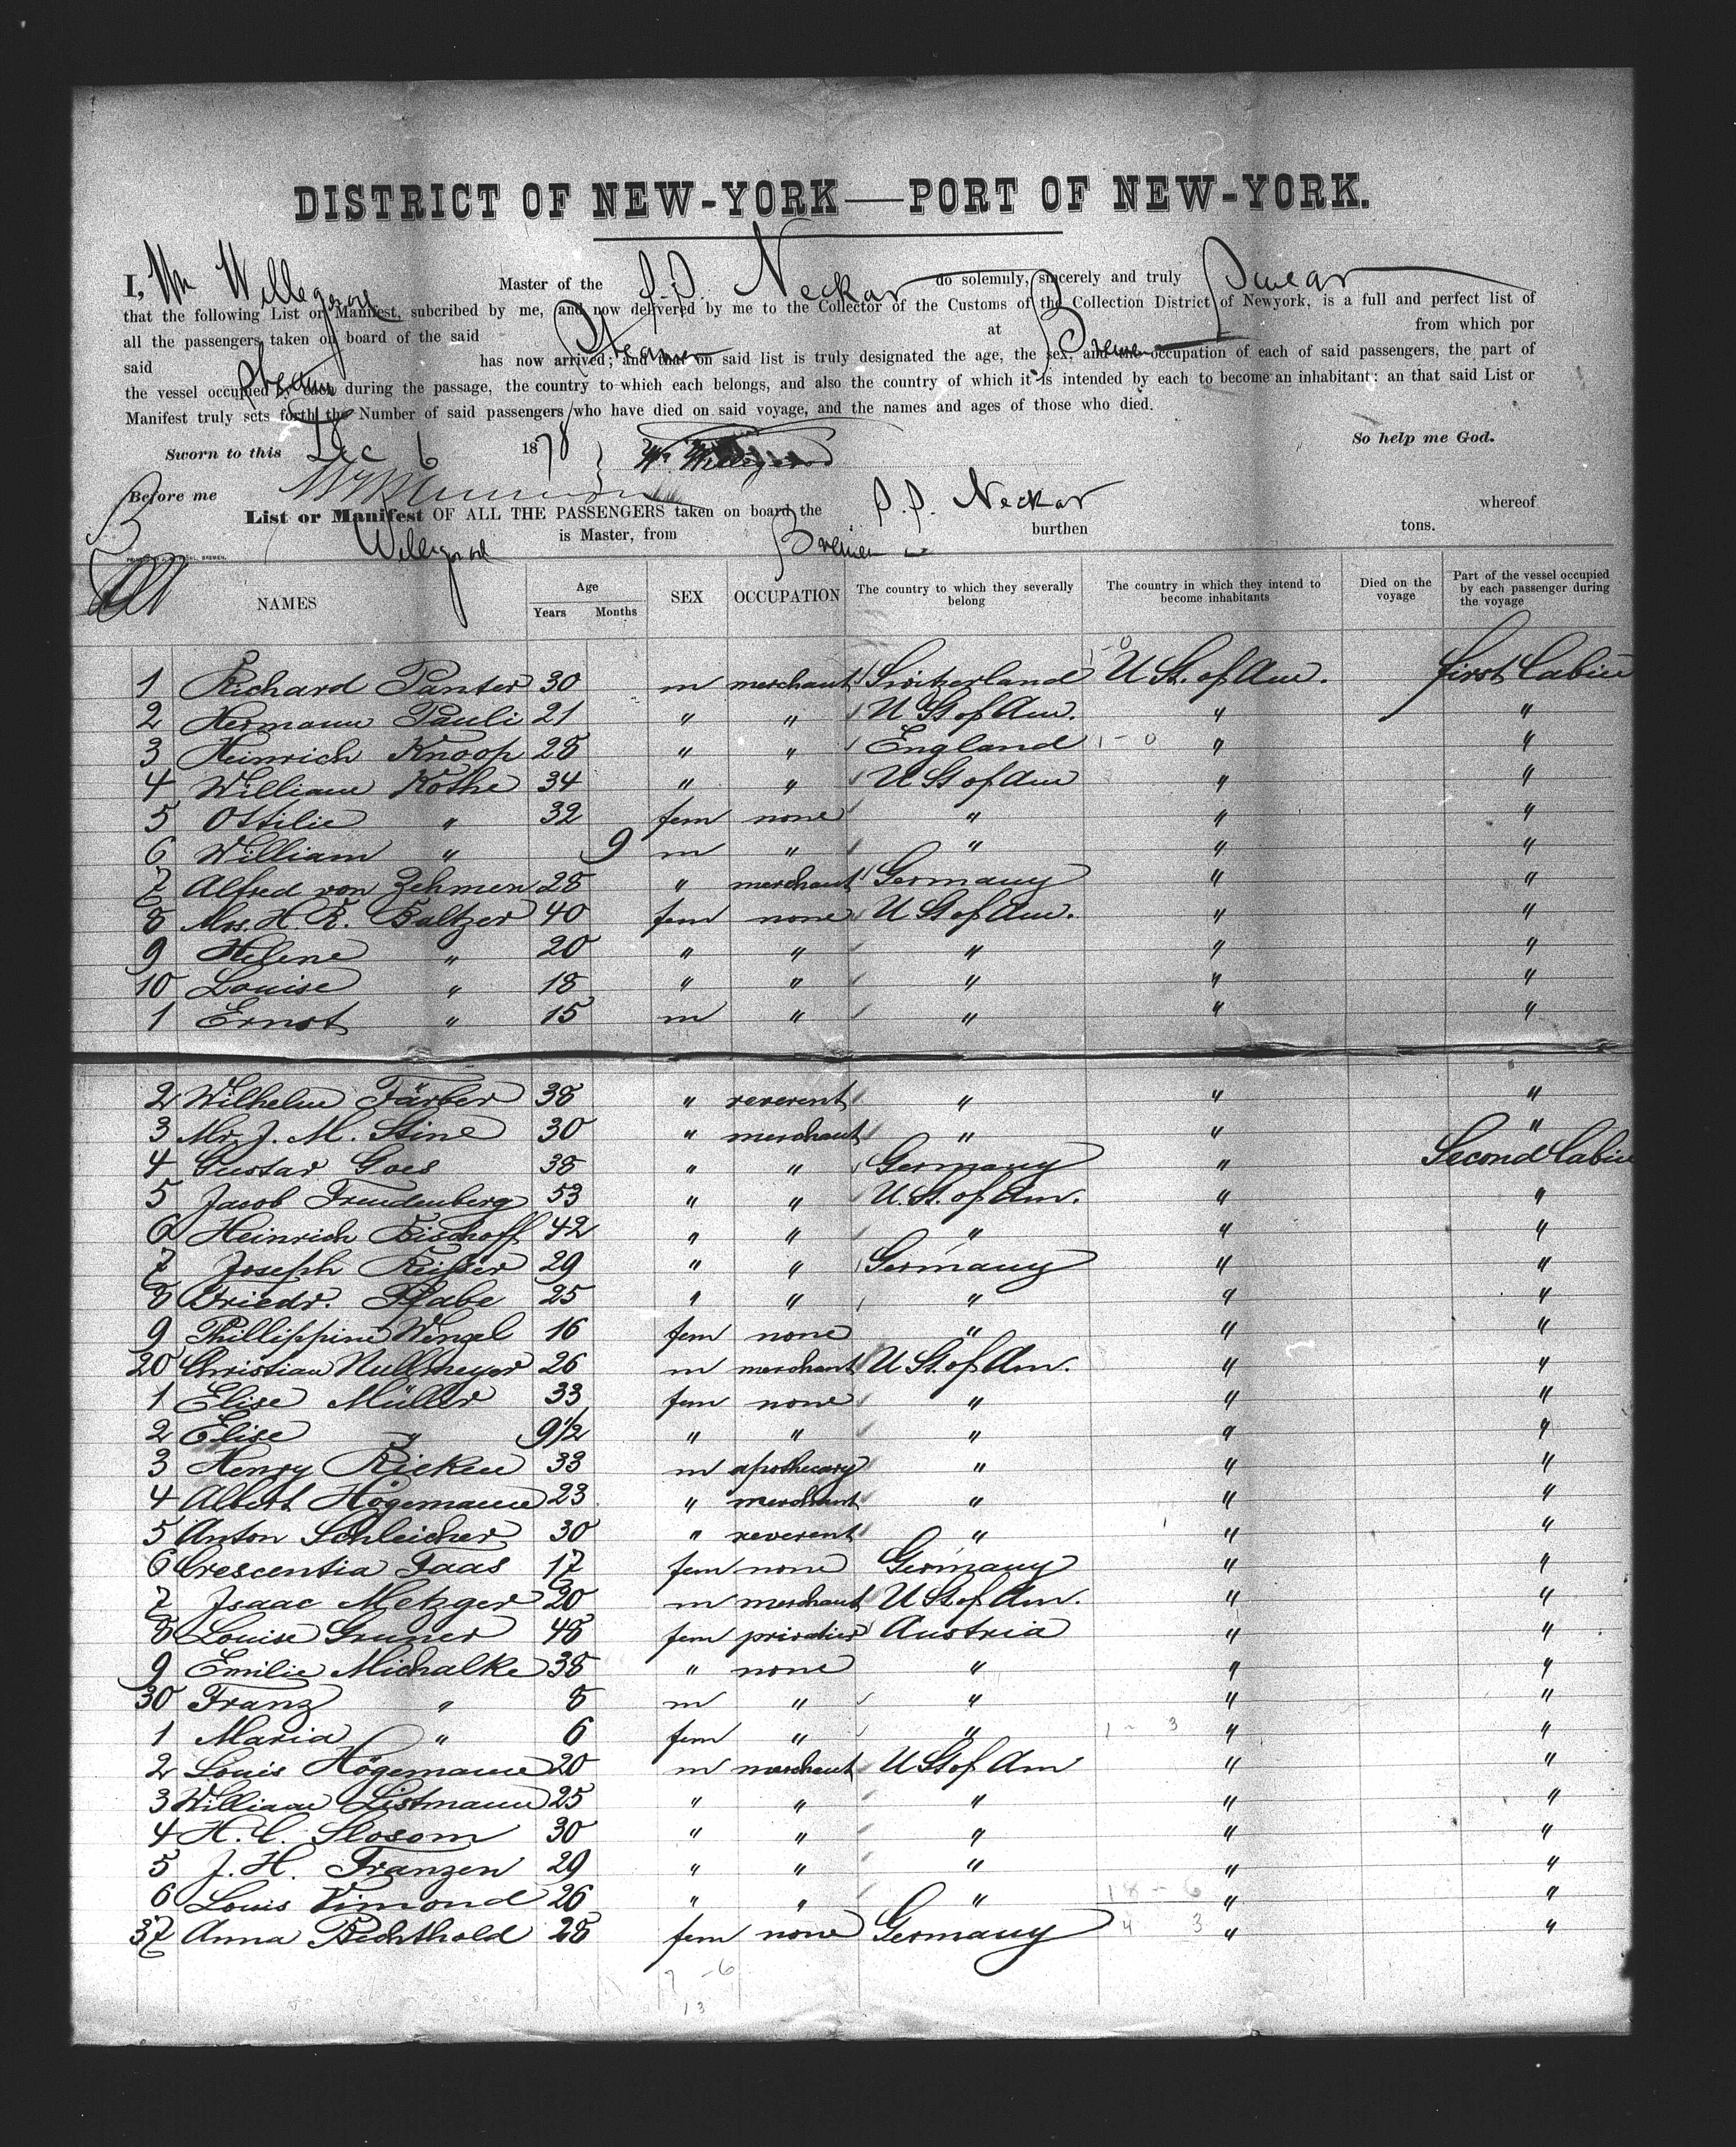 DISTRICT OF NEW-YORK—PORT OF NEW-YORK.
I, Wm Willegerod Master of the S.S. Neckar do solemnly, sincerely and truly Swear
that the following List or Manifest, subcribed by me, and now delivered by me to the Collector of the Customs of the Collection District of Newyork, is a full and perfect list of
all the passengers taken on board of the said Steamer at Bremen from which por
said Steamer has now arrived; and that on said list is truly designated the age, the sex, and the occupation of each of said passengers, the part of
the vessel occupied by each during the passage, the country to which each belongs, and also the country of which it is intended by each to become an inhabitant: an that said List or
Manifest truly sets forth the Number of said passengers who have died on said voyage, and the names and ages of those who died.
Sworn to this Dec 6 1878 W. Willegerod So help me God.
Before me
List or Manifest OF ALL THE PASSENGERS taken on board the S.S. Neckar whereof
Willegerod is Master, from Bremen burthen tons.
NAMES Age Years Months SEX OCCUPATION The country to which they severally belong The country in which they intend to become inhabitants Died on the voyage Part of the vessel occupied by each passenger during the voyage
1 Richard Panter 30 m merchant Switzerland U St. of Am. first Cabin
2 Hermann Pauli 21 " " U St of Am. " "
3 Heinrich Knoop 28 " " England " "
4 William Kothe 34 " " U St of Am " "
5 Ottilie " 32 fem none " " "
6 William " 9 m " " " "
7 Alfred von Zehmen 28 " merchant Germany " "
8 Mrs. H. R. Baltzer 40 fem none U St of Am. " "
9 Helene " 20 " " " " "
10 Louise " 18 " " " " "
1 Ernst " 15 m " " " "
2 Wilhelm Färber 38 " reverent " " "
3 Mr. J. M. Stine 30 " merchant " " "
4 Gustav Goes 38 " " Germany " Second Cabin
5 Jacob Freudenberg 53 " " U. St. of Am. " "
6 Heinrich Bischoff 42 " " " " "
7 Joseph Reisser 29 " " Germany " "
8 Friedr. Pfabe 25 " " " " "
9 Phillippine Wenzel 16 fem none " " "
20 Christian Nullmeyer 26 m merchant U St. of Am. " "
1 Elise Müller 33 fem none " " "
2 Elise " 9 1/2 " " " " "
3 Henry Rieken 33 m apothecary " " "
4 Albert Högemann 23 " merchant " " "
5 Anton Schleicher 30 " reverent " " "
6 Crescentia Faas 17 fem none Germany " "
7 Isaac Metzger 20 m merchant U St. of Am. " "
8 Louise Gruner 48 fem privatier Austria " "
9 Emilie Michalke 38 " none " " "
30 Franz " 8 m " " " "
1 Maria " 6 fem " " " "
2 Louis Högemann 20 m merchant U St of Am " "
3 William Listmann 25 " " " " "
4 H. C. Slosom 30 " " " " "
5 J. H. Franzen 29 " " " " "
6 Louis Vimond 26 " " " " "
37 Anna Bechthold 28 fem none Germany " "